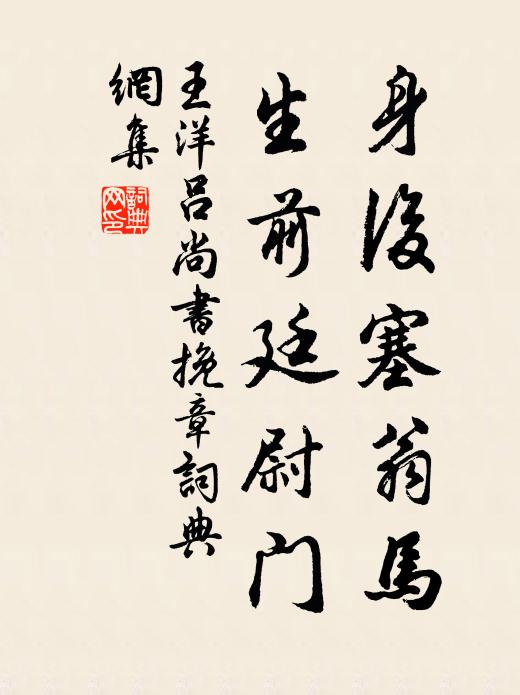 身後塞翁馬
生前廷尉門
王洋呂尚書挽章詞典
網集
詞典
网印